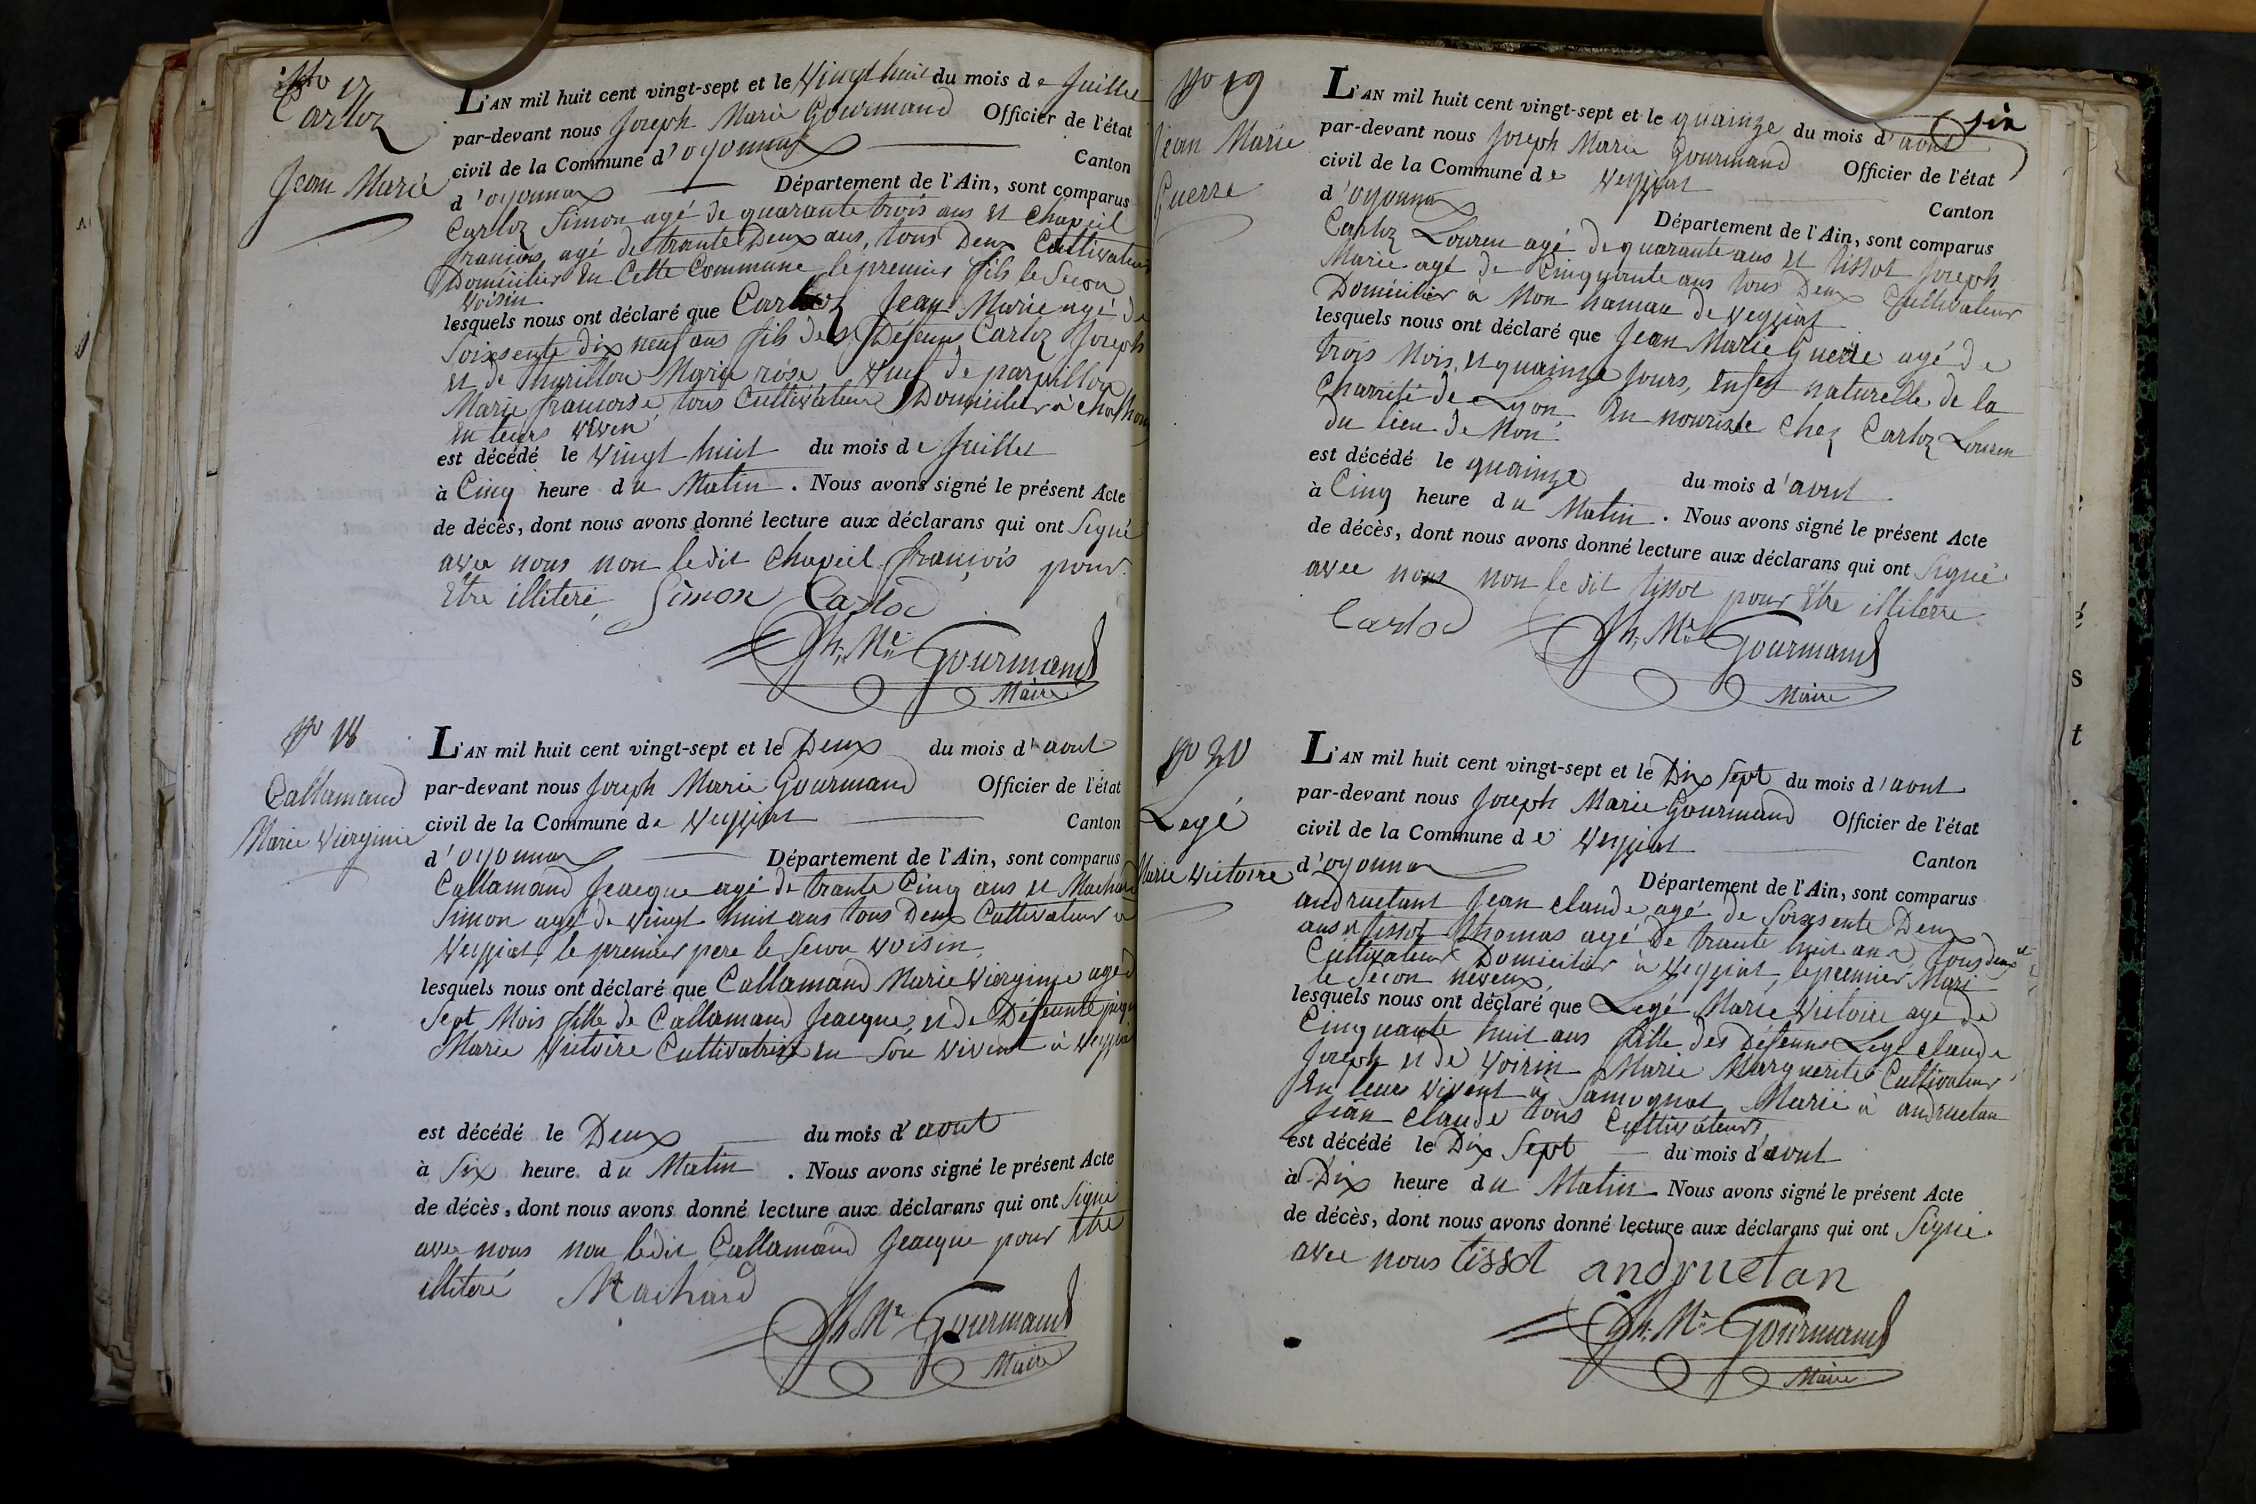 No 17
Carloz
Jean Marie
L'AN mil huit cent vingt-sept et le vingt huit du mois de Juillet
par-devant nous Joseph Marie Gourmand Officier de l'état
civil de la Commune d'oyonnax Canton
d'oyonnax Département de l'Ain, sont comparus
Carloz Simon agé de quarante trois ans et Chapeil
francois agé de trante Deux ans, tous Deux Cultivateur
Domicilier En Cette Commune le premier fils le Secon
Voisin
lesquels nous ont déclaré que Carloz Jean Marie agé de
Soixsente dix neuf ans fils des Defeuns Carloz Joseph
et de Marie rose Vuef de
Marie francoise, tous Cultivateur Domicilier à
En leurs viven
est décédé le vingt huit du mois de Juillet
à Cinq heure du Matin. Nous avons signé le présent Acte
de décès, dont nous avons donné lecture aux déclarans qui ont Signé
avec nous non ledit Chapeil francois pour
Etre illiteré Simon Carloz
Jh. Me Gourmand
Maire
No 18
Callamand
Marie Viergine
L'AN mil huit cent vingt-sept et le Deux du mois d'aout
par-devant nous Joseph Marie Gourmand Officier de l'état
civil de la Commune de Veyziat Canton
d'oyonnax Département de l'Ain, sont comparus
Callamand Jeacque agé de trante Cinq ans et Machard
Simon agé de vingt huit ans tous Deux Cultivateur a
Veyziat, le premier pere le Secon voisin,
lesquels nous ont déclaré que Callamand Marie Viergine agé d
Sept Mois fille de Callamand Jeacque, et de Défeunte
Marie Victoire Cultivatrise En Son vivent à Veyziat
est décédé le Deux du mois d'aout
à Six heure du Matin. Nous avons signé le présent Acte
de décès, dont nous avons donné lecture aux déclarans qui ont Signé
avec nous non ledit Callamand Jeacque pour Etre
illiteré Machard
Jh. Me Gourmand
Maire
six
No 19
Jean Marie
Guerre
L'AN mil huit cent vingt-sept et le quainze du mois d'aout
par-devant nous Joseph Marie Gourmand Officier de l'état
civil de la Commune de Veyziat Canton
d'oyonnax Département de l'Ain, sont comparus
Carloz Louren agé de quarante ans et tissot Joseph
Marie agé de Cinquante ans tous Deux Cultivateur
Domicilier à Mon hamau de Veyziat
lesquels nous ont déclaré que Jean Marie Guerre agé de
trois Mois, et quainze Jours, Enfen naturelle de la
Charrité de Lyon En nourisse Chez Carloz Louren
du lieu de Mon.
est décédé le quainze du mois d'aout
à Cinq heure du Matin. Nous avons signé le présent Acte
de décès, dont nous avons donné lecture aux déclarans qui ont Signé
avec nous non le dit tissot pour Etre illiterre
Carloz
Jh. Me Gourmand
Maire
No 20
Legé
Marie Victoire
L'AN mil huit cent vingt-sept et le Dix Sept du mois d'aout
par-devant nous Joseph Marie Gourmand Officier de l'état
civil de la Commune de Veyziat Canton
d'oyonnax Département de l'Ain, sont comparus
andruetant Jean claude agé de Soixsente Deux
ans et tissot thomas agé de trante huit ans, tous deux
Cultivateur Domicilier à Veyziat, le premier Mari
le Secon neveux,
lesquels nous ont déclaré que Legé Marie Victoire agé de
Cinquante huit ans fille des Défeuns Legé claude
Joseph et de Voirin Marie Marguerite Cultivateur
En leurs vivent à Samognat Marie à andruetan
Jean claude tous Cultivateurs
est décédé le Dix Sept du mois d'aout
à Dix heure du Matin Nous avons signé le présent Acte
de décès, dont nous avons donné lecture aux déclarans qui ont Signé
avec nous tissot andruetan
Jh. Me Gourmand
Maire